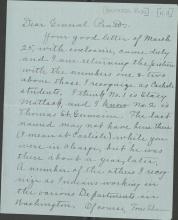 Dear General Pratt:
Your good letter of March
25, with enclosures, came duly
and I am returning the picture
with the number one & two
above those I recognize as Carlisle
students, I think No. 1 is Stacy
Matlack, and I know no. 2 is
Thomas St. Germaine. The last
named may not have been there
(I mean at Carlisle) while you
were in charge, but he was
there about a year later.
A number of the others I recog-
nize as Indians working in
the various Departments in
Washington. Of course, you